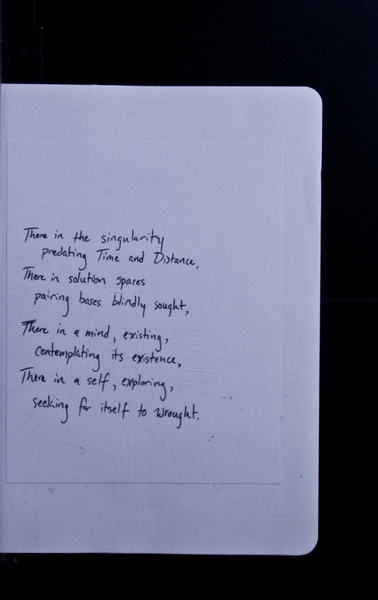 There in the singularity
predating Time and Distance,
There in solution spaces
pairing bases blindly sought,
There in a mind, existing,
contemplating its existence,
There in a self, exploring,
seeking for itself to wrought.